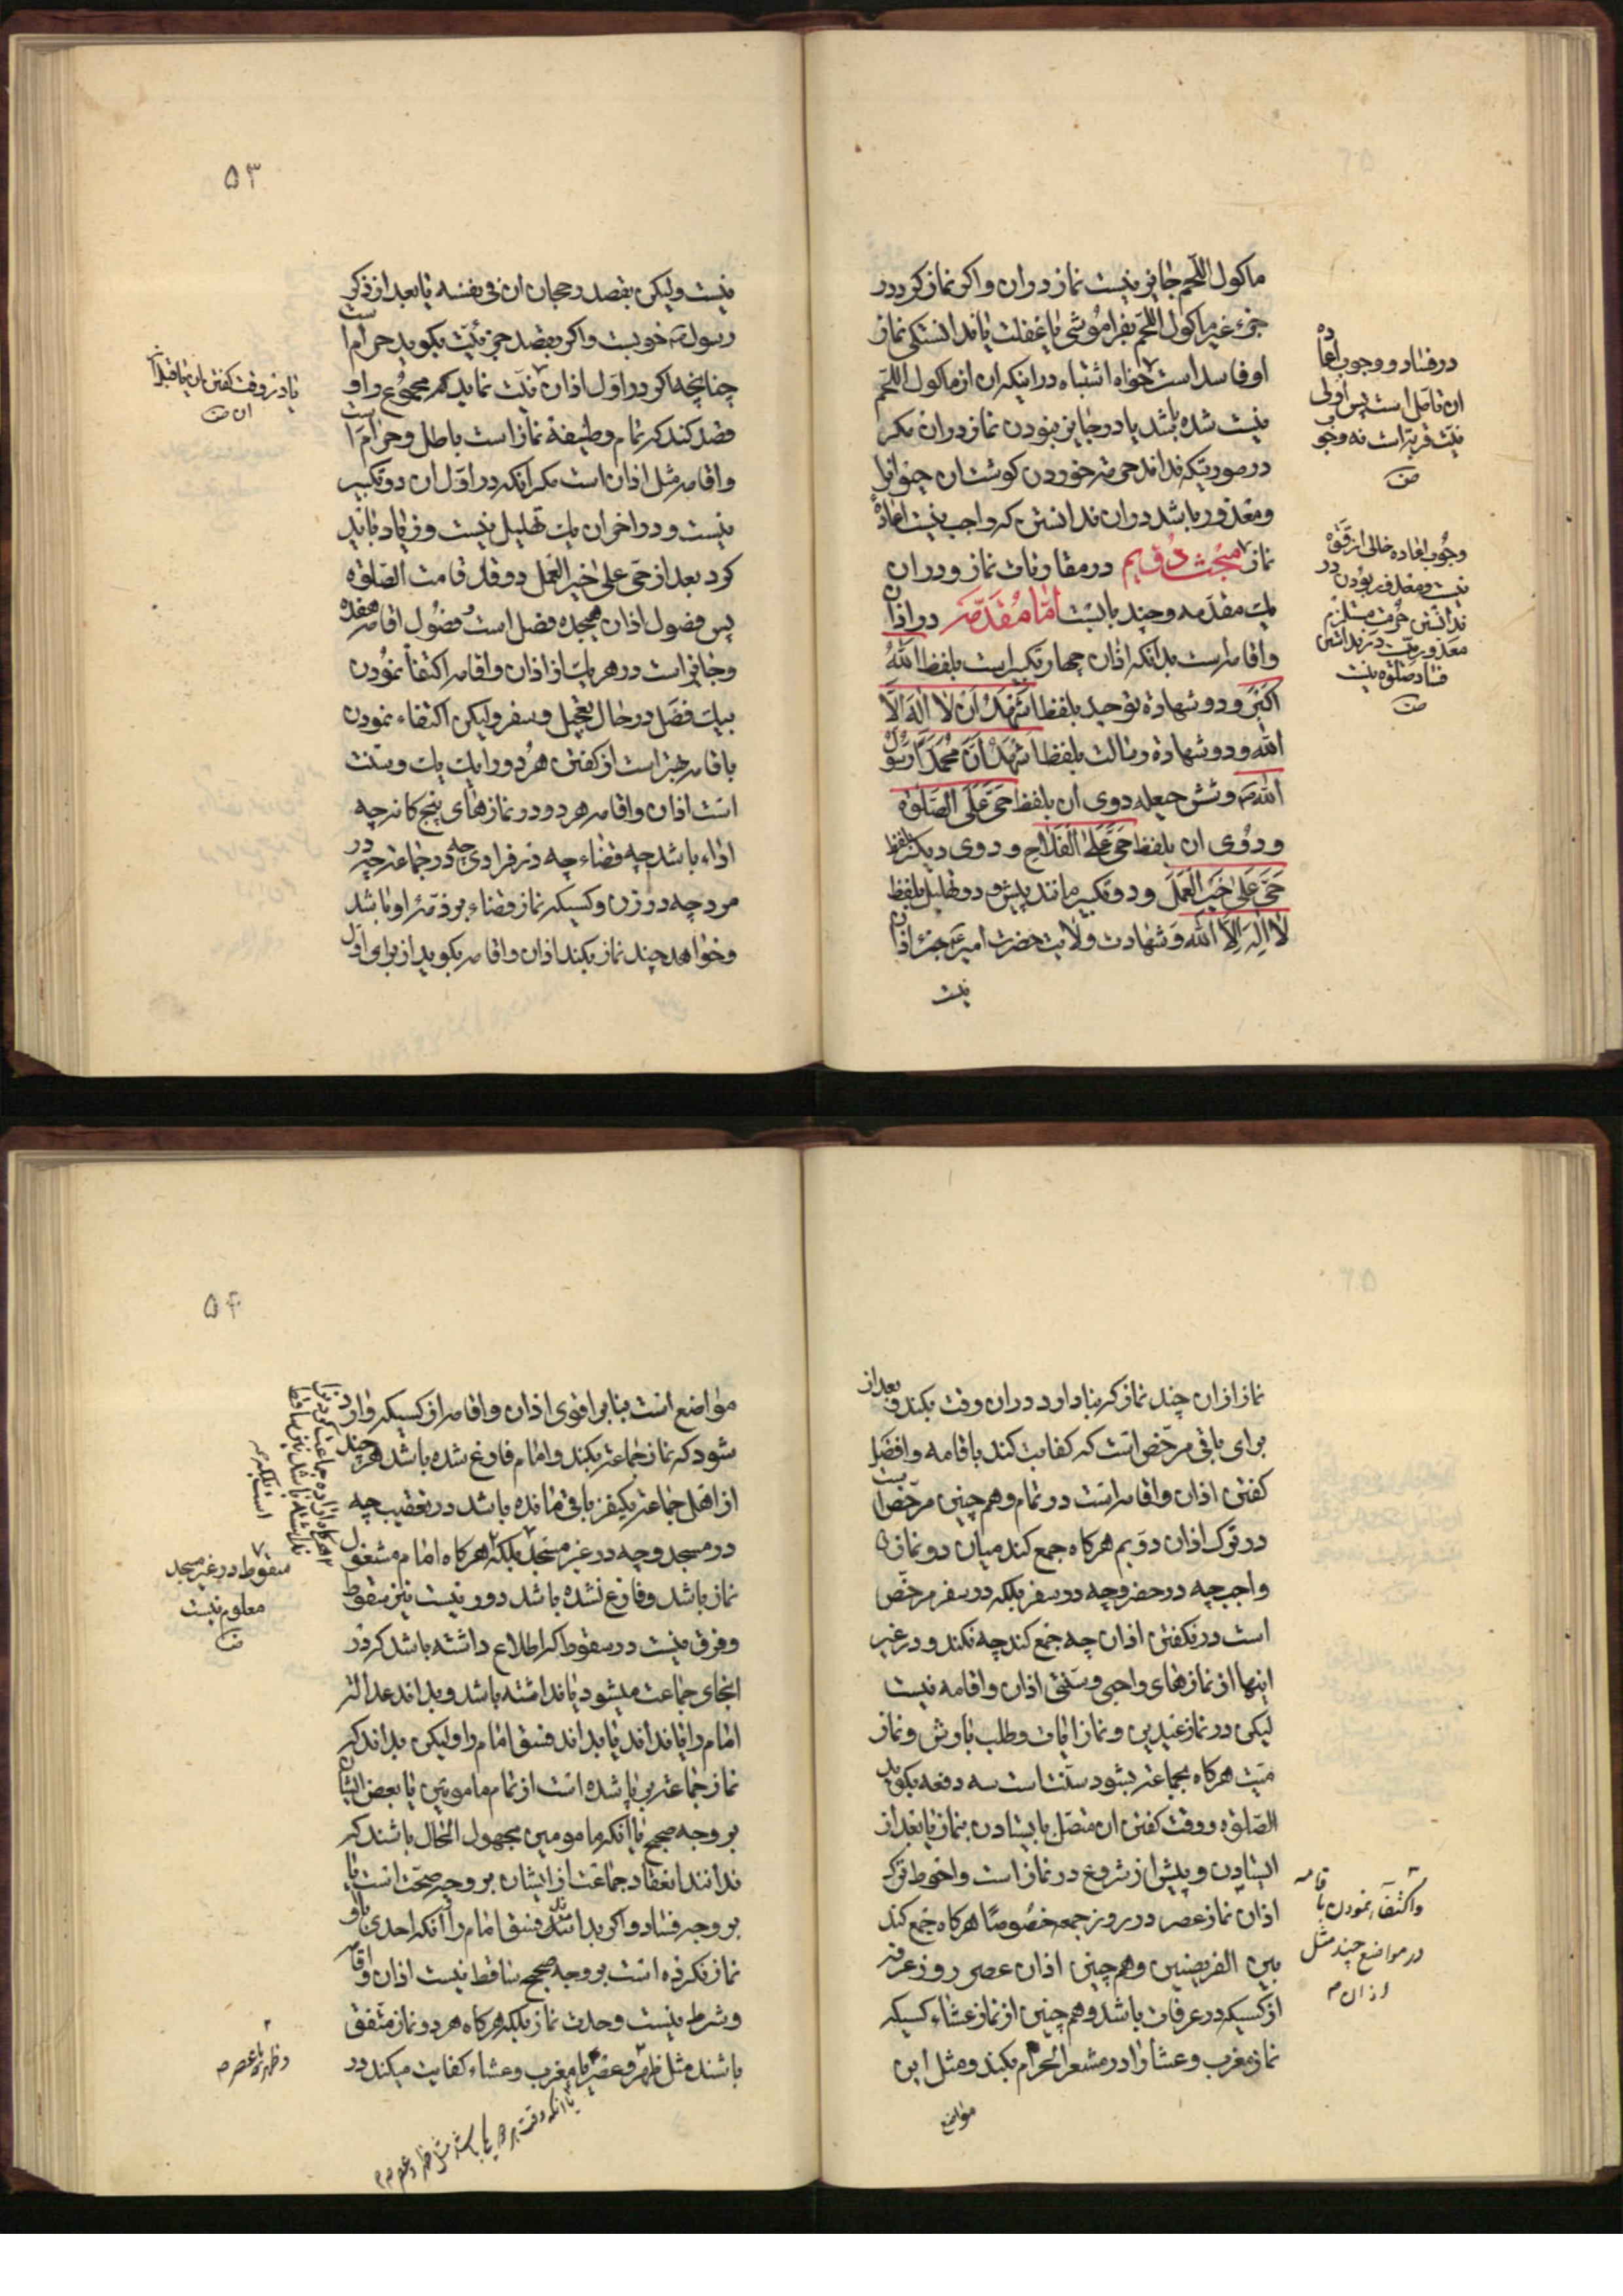 ماكول اللّحم جايز نيست نماز در ان و اكر نماز كرد در
جزء غير ماكول اللّحم بفراموشى يا غفلت يا ندانستكى نماز
او فاسد است خواه اشتباه در اينكه ان از ماكول اللّحم
نيست شده باشد يا در جايز نبودن نماز در ان مكر
در صورتيكه نداند حرمة خوردن كوشت ان حيوانرا
و معذور باشد در ان ندانستن كه واجب نيست اعادهٔ
نماز مبحث دويم در مقارنات نماز و در ان
يك مقدمه و چند بابست امّا مقدّمه در اذان
و اقامه است بدانكه اذان چهار تكبير است بلفظ اللّه
اكبر و دو شهادة توحيد بلفظ اشهد ان لا اله الّا
اللّه و دو شهادة رسالت بلفظ اشهد انّ محمّداً رسول
اللّه و شش حيعله دوى ان بلفظ حىّ على الصّلوة
و دوى ان بلفظ حىّ على الفلاح و دوى ديكر بلفظ
حىّ على خير العمل و دو تكبير مانند پيش و دو تهليل بلفظ
لا اله الّا اللّه و شهادت ولايت حضرت امير جزء اذان
نيست
در فساد و وجوب اعاده
ان تامل است پس اولى
نيّت قربة است نه وجوب
وجوب اعاده خالى از قوّة
نيست و معذور بودن در
ندانستن حرمت مستلزم
معذوريت در ندانستن
فساد صلوة نيست
۵۳
نيست وليكن بقصد رجحان ان فى نفسه يا بعد از ذكر
رسول خوبست و اكر بقصد جزئيّت بكويد حرام است
چنانچه اكر در اوّل اذان نيّت نمايد كه مجموع را و
قصد كند كه تمام وظيفهٔ نماز است باطل و حرام است
و اقامه مثل اذان است مكر انكه در اوّل ان دو تكبير
نيست و در اخر ان يك تهليل نيست و زياد بايد
كرد بعد از حىّ على خير العمل دو قد قامت الصّلوة
پس فصول اذان هيجده فصل است و فصول اقامه هفده
و جايز است در هر يك از اذان و اقامه اكتفا نمودن
بيك فصل در حال تعجيل و سفر وليكن اكتفاء نمودن
باقامه بهتر است از كفتن هر دو را يك يك و سنّت
است اذان و اقامه هر دو در نمازهاى پنج كانه چه
اداء باشد چه قضاء چه در فرادى چه در جماعة چه در
مرد چه در زن و كسيكه نماز قضاء بر ذمّهٔ او باشد
و خواهد چند نماز بكند اذان و اقامه بكويد از براى اوّل
نماز از ان چند نماز كه بنا دارد در ان وقت بكند و بعد از
براى باقى مرخّص است كه كفايت كند باقامه و افضل
كفتن اذان و اقامه است در تمام و هم چنين مرخّص است
در ترك اذان دويم هركاه جمع كند ميان دو نماز
واجب چه در حضر و چه در سفر بلكه در سفر مرخّص
است در نكفتن اذان چه جمع كند چه نكند و در غير
اينها از نمازهاى واجبى و سنّتى اذان و اقامه نيست
ليكن در نماز عيدين و نماز ايات و طلب بارش و نماز
ميّت هركاه بجماعة بشود سنّت است سه دفعه بكويد
الصّلوة و وقت كفتن ان متّصل بايستادن بنماز يا بعد از
ايستادن و پيش از شروع در نماز است و احوط ترك
اذان نماز عصر در روز جمعه خصوصاً هركاه جمع كند
بين الفريضتين و هم چنين اذان عصر روز عرفه
از كسيكه در عرفات باشد و هم چنين از نماز عشاء كسيكه
نماز مغرب و عشا را در مشعر الحرام بكند و مثل اين
مواضع
و اكتفا نمودن باقامه
در مواضع چند مثل
اذان
۵۴
مواضع است بنا بر اقوى اذان و اقامه از كسيكه وارد
شود كه نماز جماعة بكند و امام فارغ شده باشد هر چند
از اهل جماعة يكنفر باقى مانده باشد در تعقيب چه
در مسجد و چه در غير مسجد بلكه هركاه امام مشغول
نماز باشد و فارغ نشده باشد دور نيست نيز سقوط
و فرق نيست در سقوط كه اطلاع داشته باشد كه در
انجاى جماعت ميشود يا نداشته باشد و بداند عدالت
امام را يا نداند يا بداند فسق امام را وليكن بداند كه
نماز جماعة بر پا شده است از تمام مامومين يا بعض ايشان
بر وجه صحيح يا آنكه مامومين مجهول الحال باشند كه
ندانند انعقاد جماعت از ايشان بر وجه صحّت است يا
بر وجه فساد و اكر بدانند فسق امام را و آنكه احدى با او
نماز نكرده است بر وجه صحيح ساقط نيست اذان و اقامه
و شرط نيست وحدت نماز بلكه هركاه هر دو نماز متّفق
باشند مثل ظهر و عصر يا مغرب و عشاء كفايت ميكند در
سقوط در غير مسجد
معلوم نيست